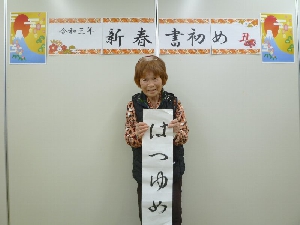 令和三年 新春書初め 丑
はつゆめ